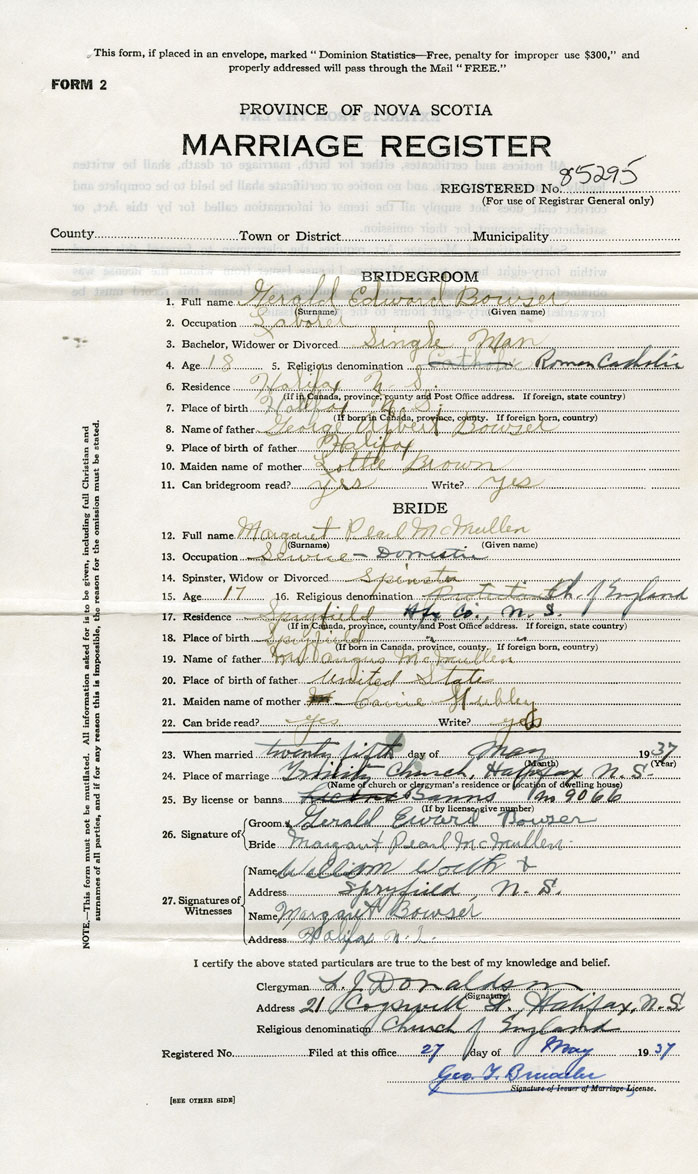 This form, if placed in an envelope, marked "Dominion Statistics—Free, penalty for improper use $300," and
properly addressed will pass through the Mail "FREE."
FORM 2
PROVINCE OF NOVA SCOTIA
MARRIAGE REGISTER
REGISTERED No. 85295
(For use of Registrar General only)
County Town or District Municipality
BRIDEGROOM
1. Full name Gerald Edward Bowser
(Surname) (Given name)
2. Occupation Laborer
3. Bachelor, Widower or Divorced Single Man
4. Age 18 5. Religious denomination Roman Catholic
6. Residence Halifax N. S.
(If in Canada, province, county and Post Office address. If foreign, state country)
7. Place of birth Halifax N. S.
(If born in Canada, province, county. If foreign born, country)
8. Name of father George Bowser
9. Place of birth of father Halifax
10. Maiden name of mother Lottie Brown
11. Can bridegroom read? yes Write? yes
BRIDE
12. Full name Margaret Pearl McMullen
(Surname) (Given name)
13. Occupation Service - Domestic
14. Spinster, Widow or Divorced Spinster
15. Age 17 16. Religious denomination Ch. of England
17. Residence Spryfield Hfx Co., N. S.
(If in Canada, province, county and Post Office address. If foreign, state country)
18. Place of birth Spryfield " "
(If born in Canada, province, county. If foreign born, country)
19. Name of father Angus McMullen
20. Place of birth of father United State
21. Maiden name of mother
22. Can bride read? yes Write? yes
23. When married twenty fifth day of May 1937
(Month) (Year)
24. Place of marriage Trinity Church, Halifax N. S.
(Name of church or clergyman's residence or location of dwelling house)
25. By license or banns License Banns No 9066
(If by license, give number)
26. Signature of Groom Gerald Edward Bowser
Bride Margaret Pearl McMullen
27. Signatures of Witnesses
Name William
Address Spryfield, N. S.
Name Margaret Bowser
Address Halifax N. S.
I certify the above stated particulars are true to the best of my knowledge and belief.
Clergyman L. J. Donaldson
(Signature)
Address 21 Cogswell St. Halifax, N.S.
Religious denomination Church of England
Registered No. Filed at this office 27 day of May 1937
Geo. T.
Signature of Issuer of Marriage License.
[SEE OTHER SIDE]
NOTE.—This form must not be mutilated. All information asked for is to be given, including full Christian and
surnames of all parties, and if for any reason this is impossible, the reason for the omission must be stated.